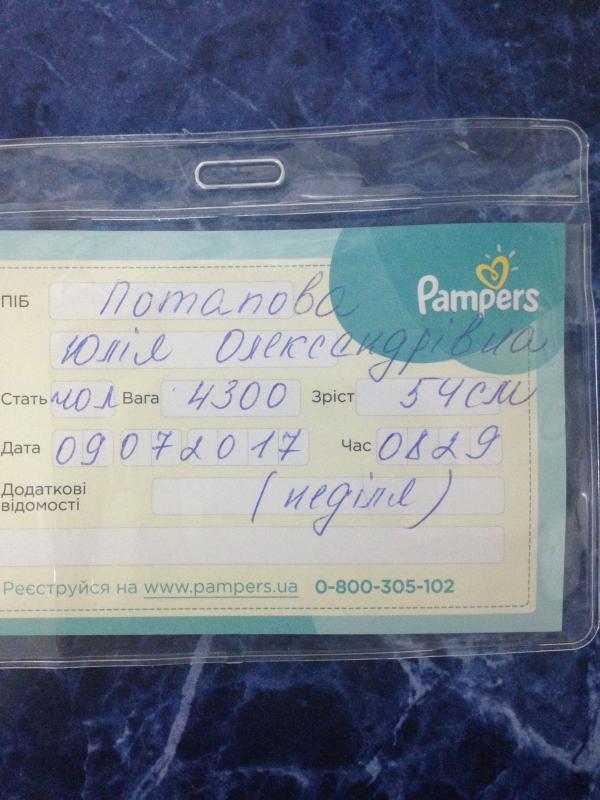 Pampers
ПІБ Потапова
Юлія Олександрівна
Стать чол Вага 4300 Зріст 54см
Дата 09 07 2017 Час 0829
Додаткові
відомості (неділя)
Реєструйся на www.pampers.ua 0-800-305-102